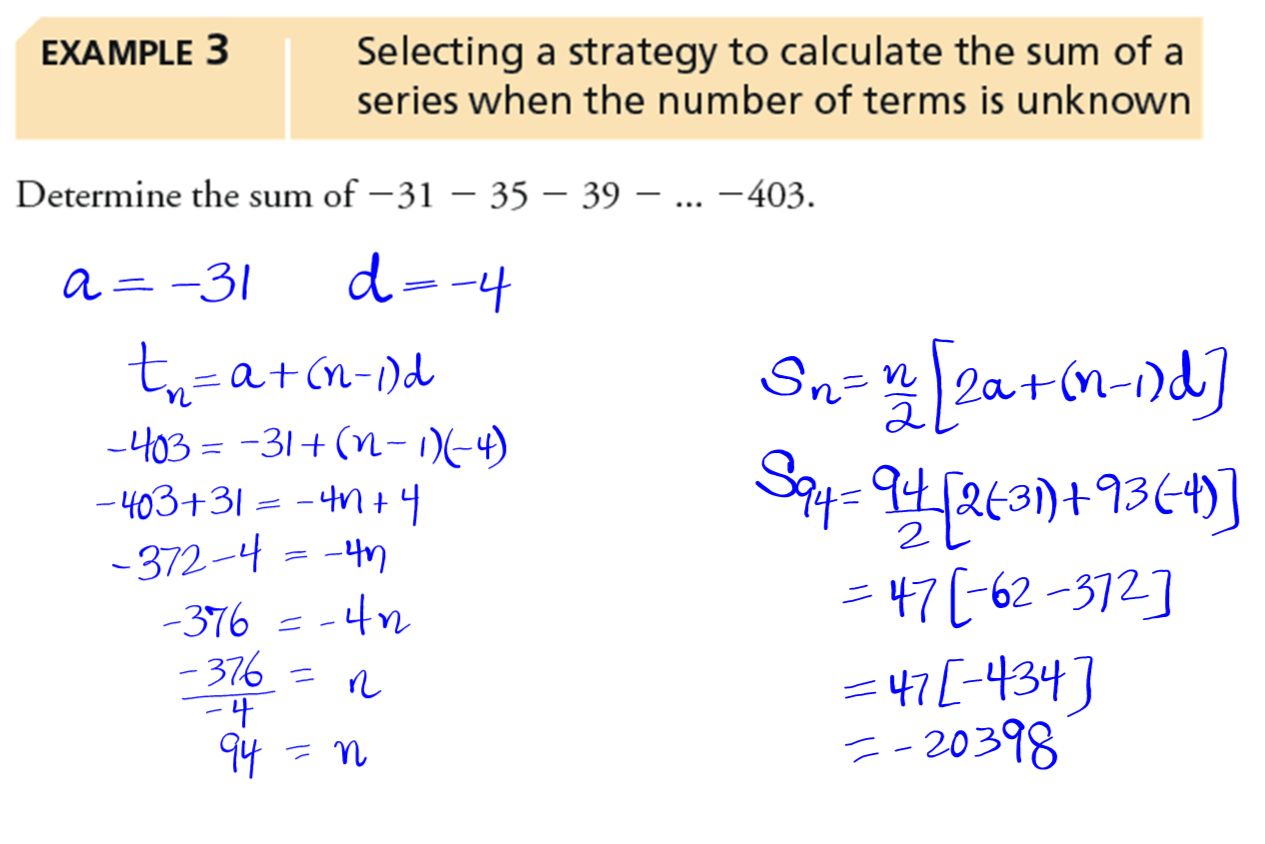 EXAMPLE 3
Selecting a strategy to calculate the sum of a
series when the number of terms is unknown
Determine the sum of −31 − 35 − 39 − ... −403.
a = -31 d = -4
tₙ = a + (n-1)d
-403 = -31 + (n-1)(-4)
-403+31 = -4n + 4
-372-4 = -4n
-376 = -4n
-376/-4 = n
94 = n
Sₙ = n/2 [2a+(n-1)d]
S₉₄ = 94/2 [2(-31)+93(-4)]
= 47[-62-372]
= 47[-434]
= -20398